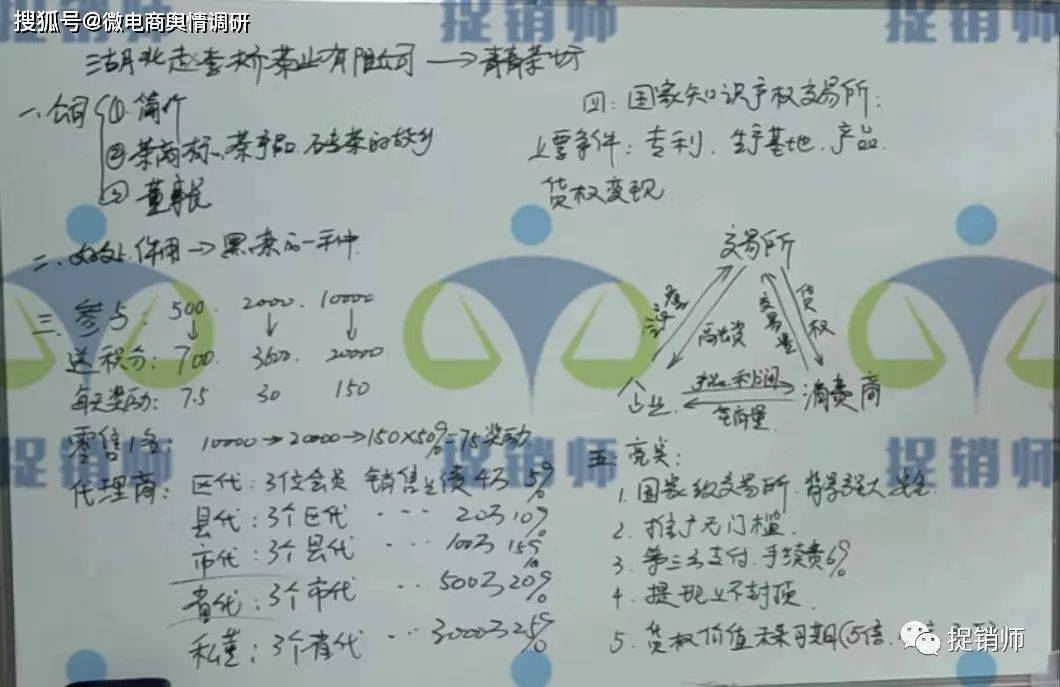 搜狐号@微电商舆情调研
捉销师 捉销师
湖北赵李桥茶业有限公司 → 青青茶坊
一、公司 ① 简介
② 茶商标、茶产品、砖茶的故乡
③ 董事长
二、好处、作用 → 黑茶的一种
三、参与: 500 2000 10000
送积分: 700 3600 20000
每天奖励: 7.5 30 150
零售1名: 10000→20000→150×50%=75奖励
代理商: 区代: 3位会员 销售业债4万 5%
县代: 3个区代 ··· 20万 10%
市代: 3个县代 ··· 100万 15%
省代: 3个市代 ·· 500万 20%
私董: 3个省代 ··· 3000万 25%
四: 国家知识产权交易所:
上票条件: 专利、生产基地、产品
货权变现
交易所
融资
交易量
货权
企业
利润
销量
消费商
五 亮点:
1. 国家级交易所 背景强大 安全
2. 推广无门槛
3. 第三方支付 手续费6%
4. 提现上不封顶
5. 货权价值未来可期(5倍、
捉销师 捉销师 捉销师
捉销师